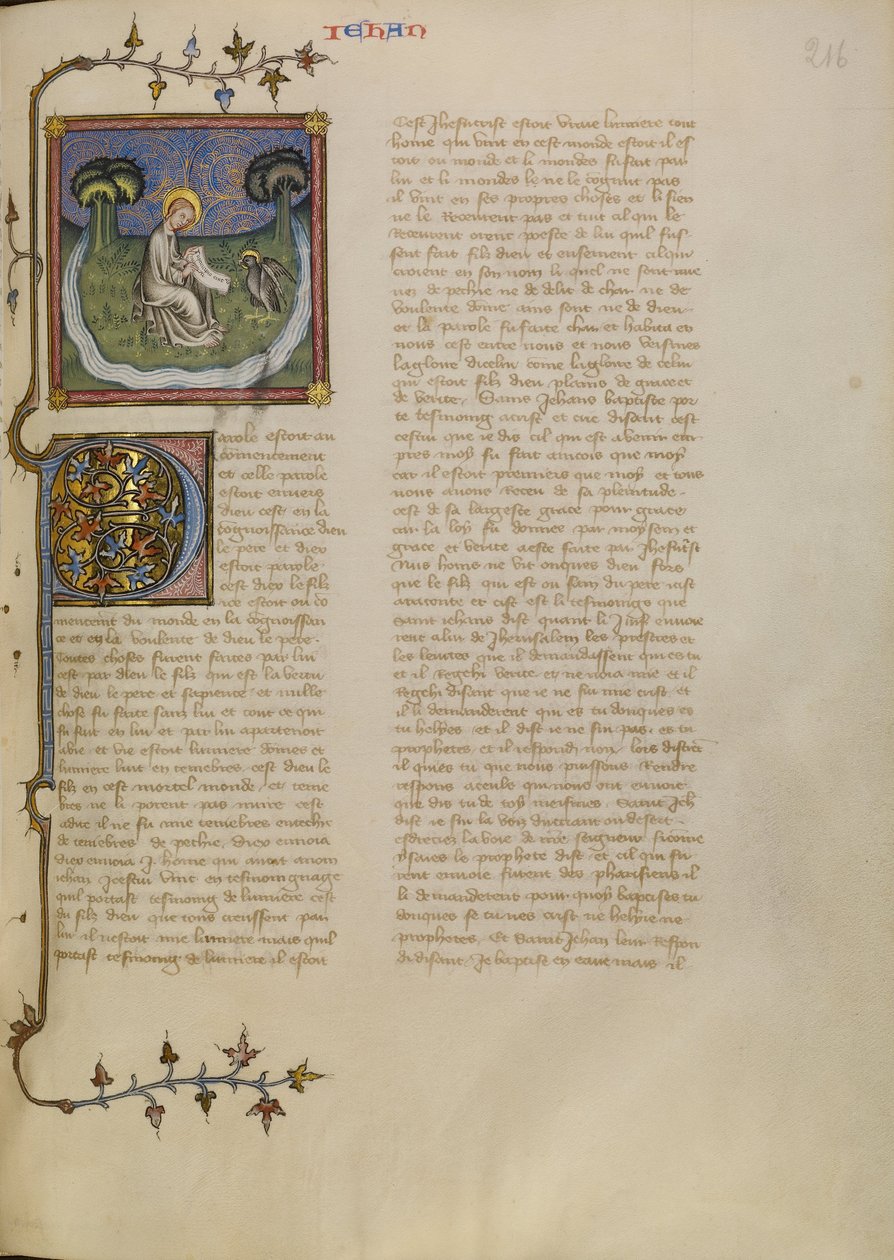 IEHAN
216
Parole estoit au
commencement
et celle parole
estoit envers
dieu cest en la
cognoissance dieu
le pere et diex
estoit parole
cest diex le filz
ice estoit ou co
mencemt du monde en la cognoissan
ce et en la voulente de dieu le pere.
Toutes choses furent faites par lui
cest par dieu le filz qui est la vertu
de dieu le pere et sapience et nulle
chose fu faite sans lui et tout ce qui
fu fait en lui et par lui apartenoit
a vie et vie estoit lumiere domes et
lumiere luit en tenebres. cest dieu le
filz en cest mortel monde. et tene
bres ne li porent pas nuire cest
adire il ne fu mie tenebres
de tenebres de pechie, diex envoia
diex envoia .I. home qui avoit anom
iehan Icestui vint en tesmoingnage
quil portast tesmoing de lumiere cest
du filz dieu que tous creussent par
lui il nestoit mie lumiere mais quil
portast tesmoing de lumiere il estoit
Cest Jhesucrist estoit vraie lumiere tout
home qui vint en cest monde estoit il es
toit ou monde et li mondes fu fait par
lui et li mondes le ne le cognut pas
il vint en ses propres choses et li sien
ne le Receurent pas et tuit cil qui le
Receurent orent poeste de lui quil fus
sent fait filz dieu et ensement cil qui
croient en son nom li quel ne sont mie
nez de pechie ne de delit de char ne de
voulente dome ains sont ne de dieu
et la parole fu faite char et habita en
nous cest entre nous et nous veismes
la gloire dicelui come la gloire de celui
qui estoit filz dieu plains de grace et
de verite. Sains Jehans baptiste por
te tesmoing acrist et crie disant cest
cestui que ie dis cil qui est avenir em
pres moy fu fait aincois que moy
car il estoit premiers que moy et tous
nous avons Receu de sa plenitude.
cest de sa largesse grace pour grace
car la loy fu donnee par moysem et
grace et verite aeste faite par Jhesucrist
Nus homs ne vit onques dieu fors
que le filz qui est ou sain du pere icist
araconte et cist est li tesmoings que
Saint iehans dist quant li Juif envoie
rent alui de Jherusalem les prestres et
les levites que il demandassent qui es tu
et il Regehi verite et ne noia mie et il
Regehi disant que ie ne sui mie crist. et
il li demanderent qui es tu donques es
tu helyes. et il dist ie ne sui pas. es tu
prophetes. et il respondi non. lors distrent
il qui es tu que nous puissons Rendre
respons aceuls qui nous ont envoie
que dis tu de toy meismes. Saint Jeh
dist ie sui la voiz du criant ou desert.
esdreciez la voie de nre seigneur sicome
ysaies le prophete dist. et cil qui fu
rent envoie furent des pharisiens il
li demanderent pour quoy baptises tu
donques se tu nes crist ne helyie ne
prophetes. Et Saint Jehan leur Respon
di disant. Je baptist en eaue mais il